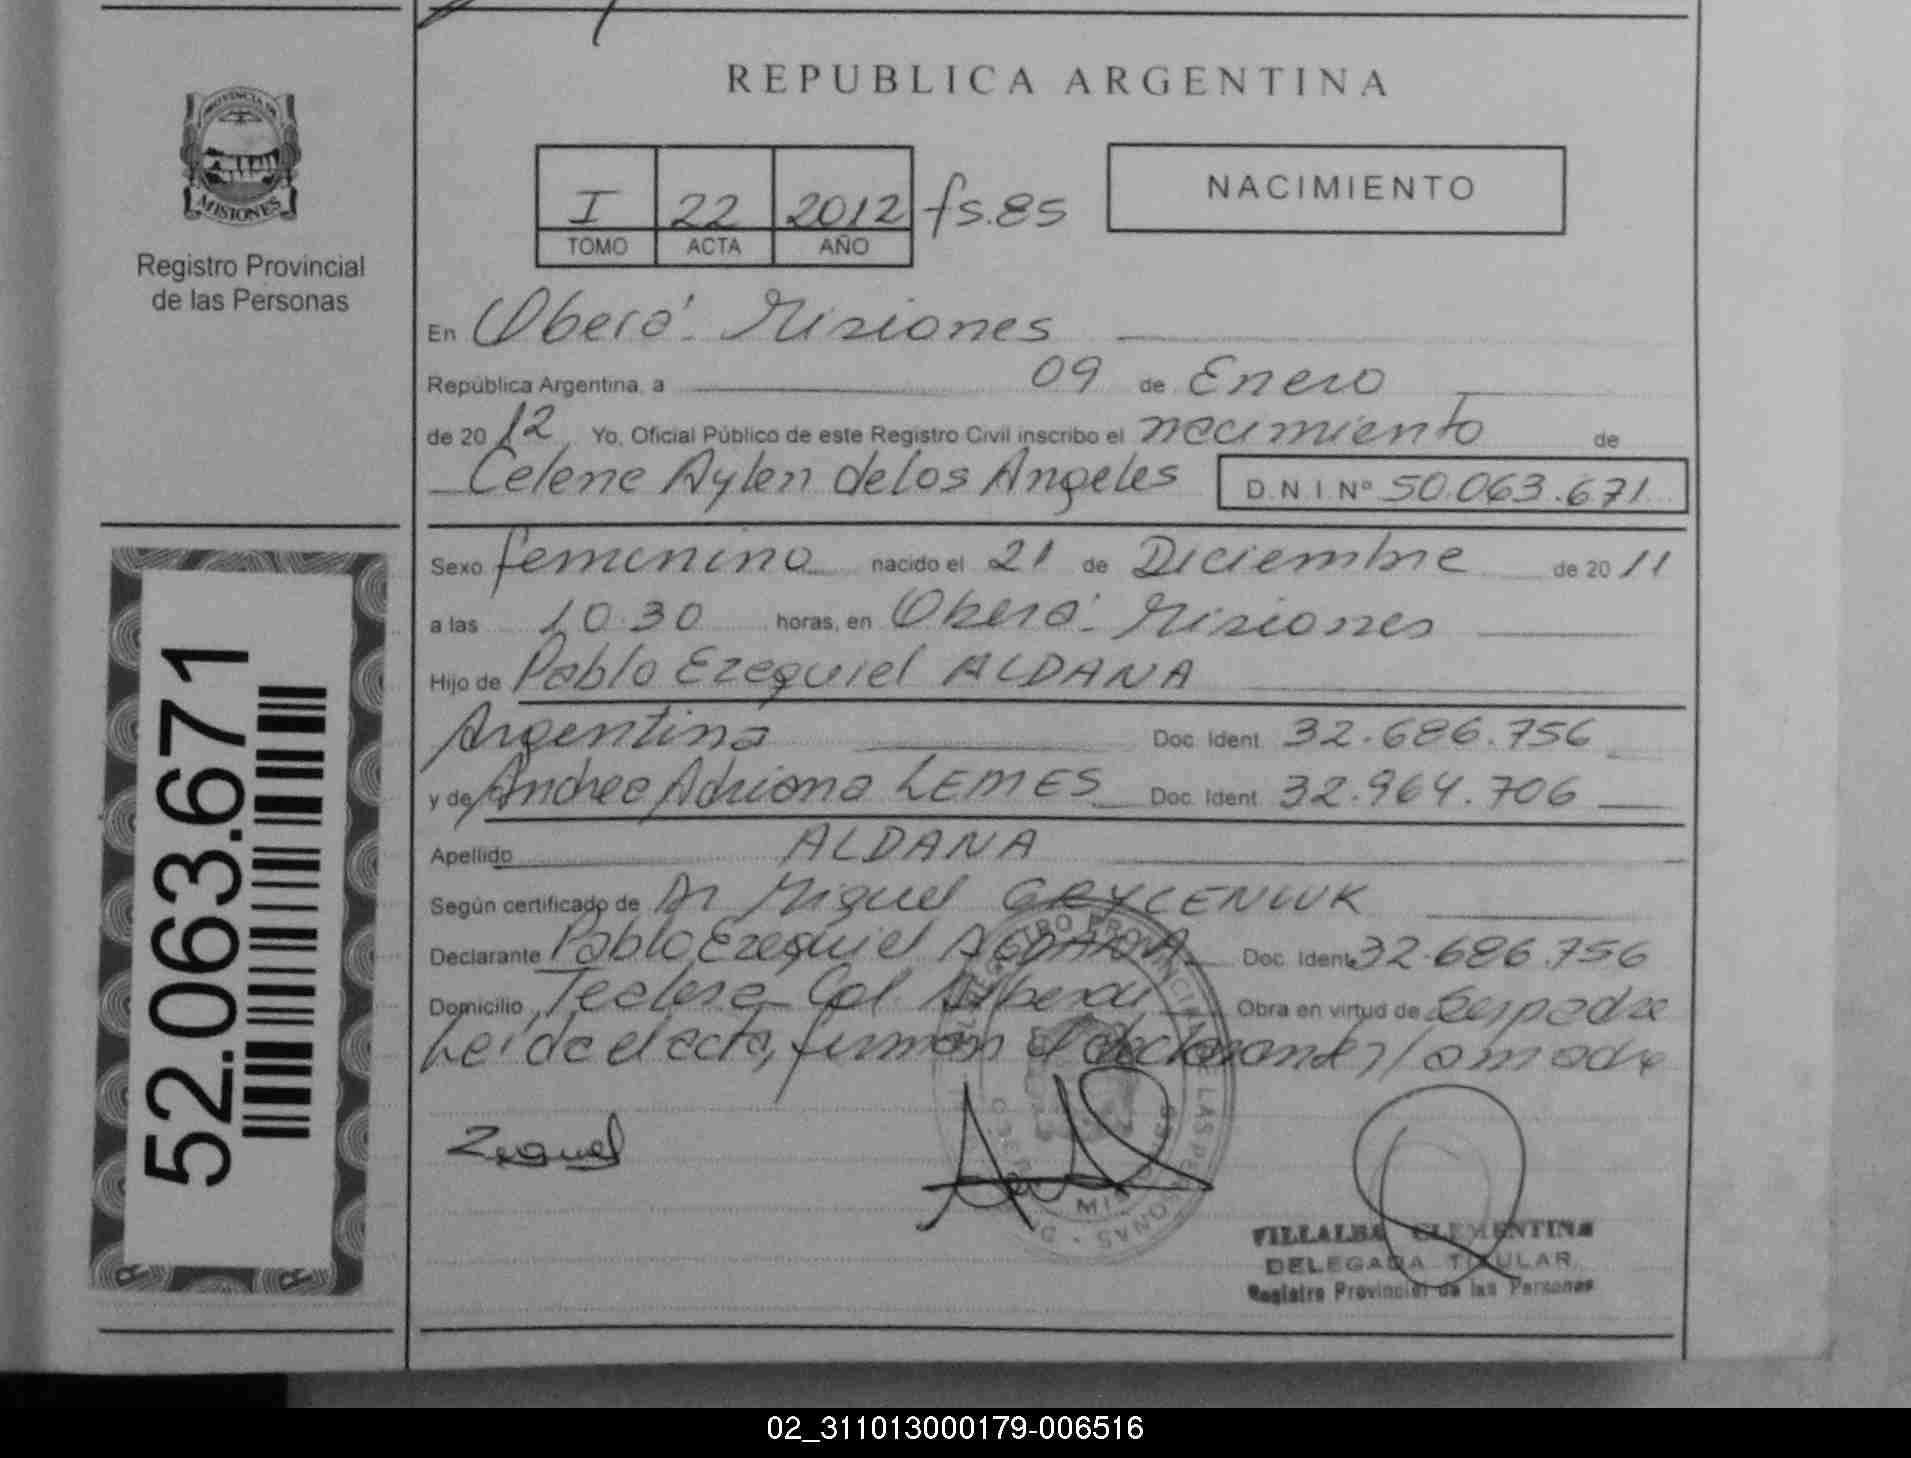 REPUBLICA ARGENTINA
PROVINCIA DE
MISIONES
Registro Provincial
de las Personas
I 22 2012 fs.85
TOMO ACTA AÑO
NACIMIENTO
En Oberá - Misiones
República Argentina, a 09 de Enero
de 2012 Yo, Oficial Público de este Registro Civil inscribo el nacimiento de
Celene Aylen de los Angeles D.N.I. Nº 50.063.671
Sexo femenino nacido el 21 de Diciembre de 2011
a las 10.30 horas, en Oberá - Misiones
Hijo de Pablo Ezequiel ALDANA
Argentina Doc. Ident. 32.686.756
y de Andrea Adriana LEMES Doc. Ident. 32.964.706
Apellido ALDANA
Según certificado de Dr Miguel GRYCENIUK
Declarante Pablo Ezequiel ALDANA Doc. Ident. 32.686.756
Domicilio Col. Alberdi Obra en virtud de Ser padre
Leída el acta, firman el declarante y la madre
52.063.671
REGISTRO PROVINCIAL DE LAS PERSONAS
VILLALBA CLEMENTINA
DELEGADA TITULAR
Registro Provincial de las Personas
02_311013000179-006516